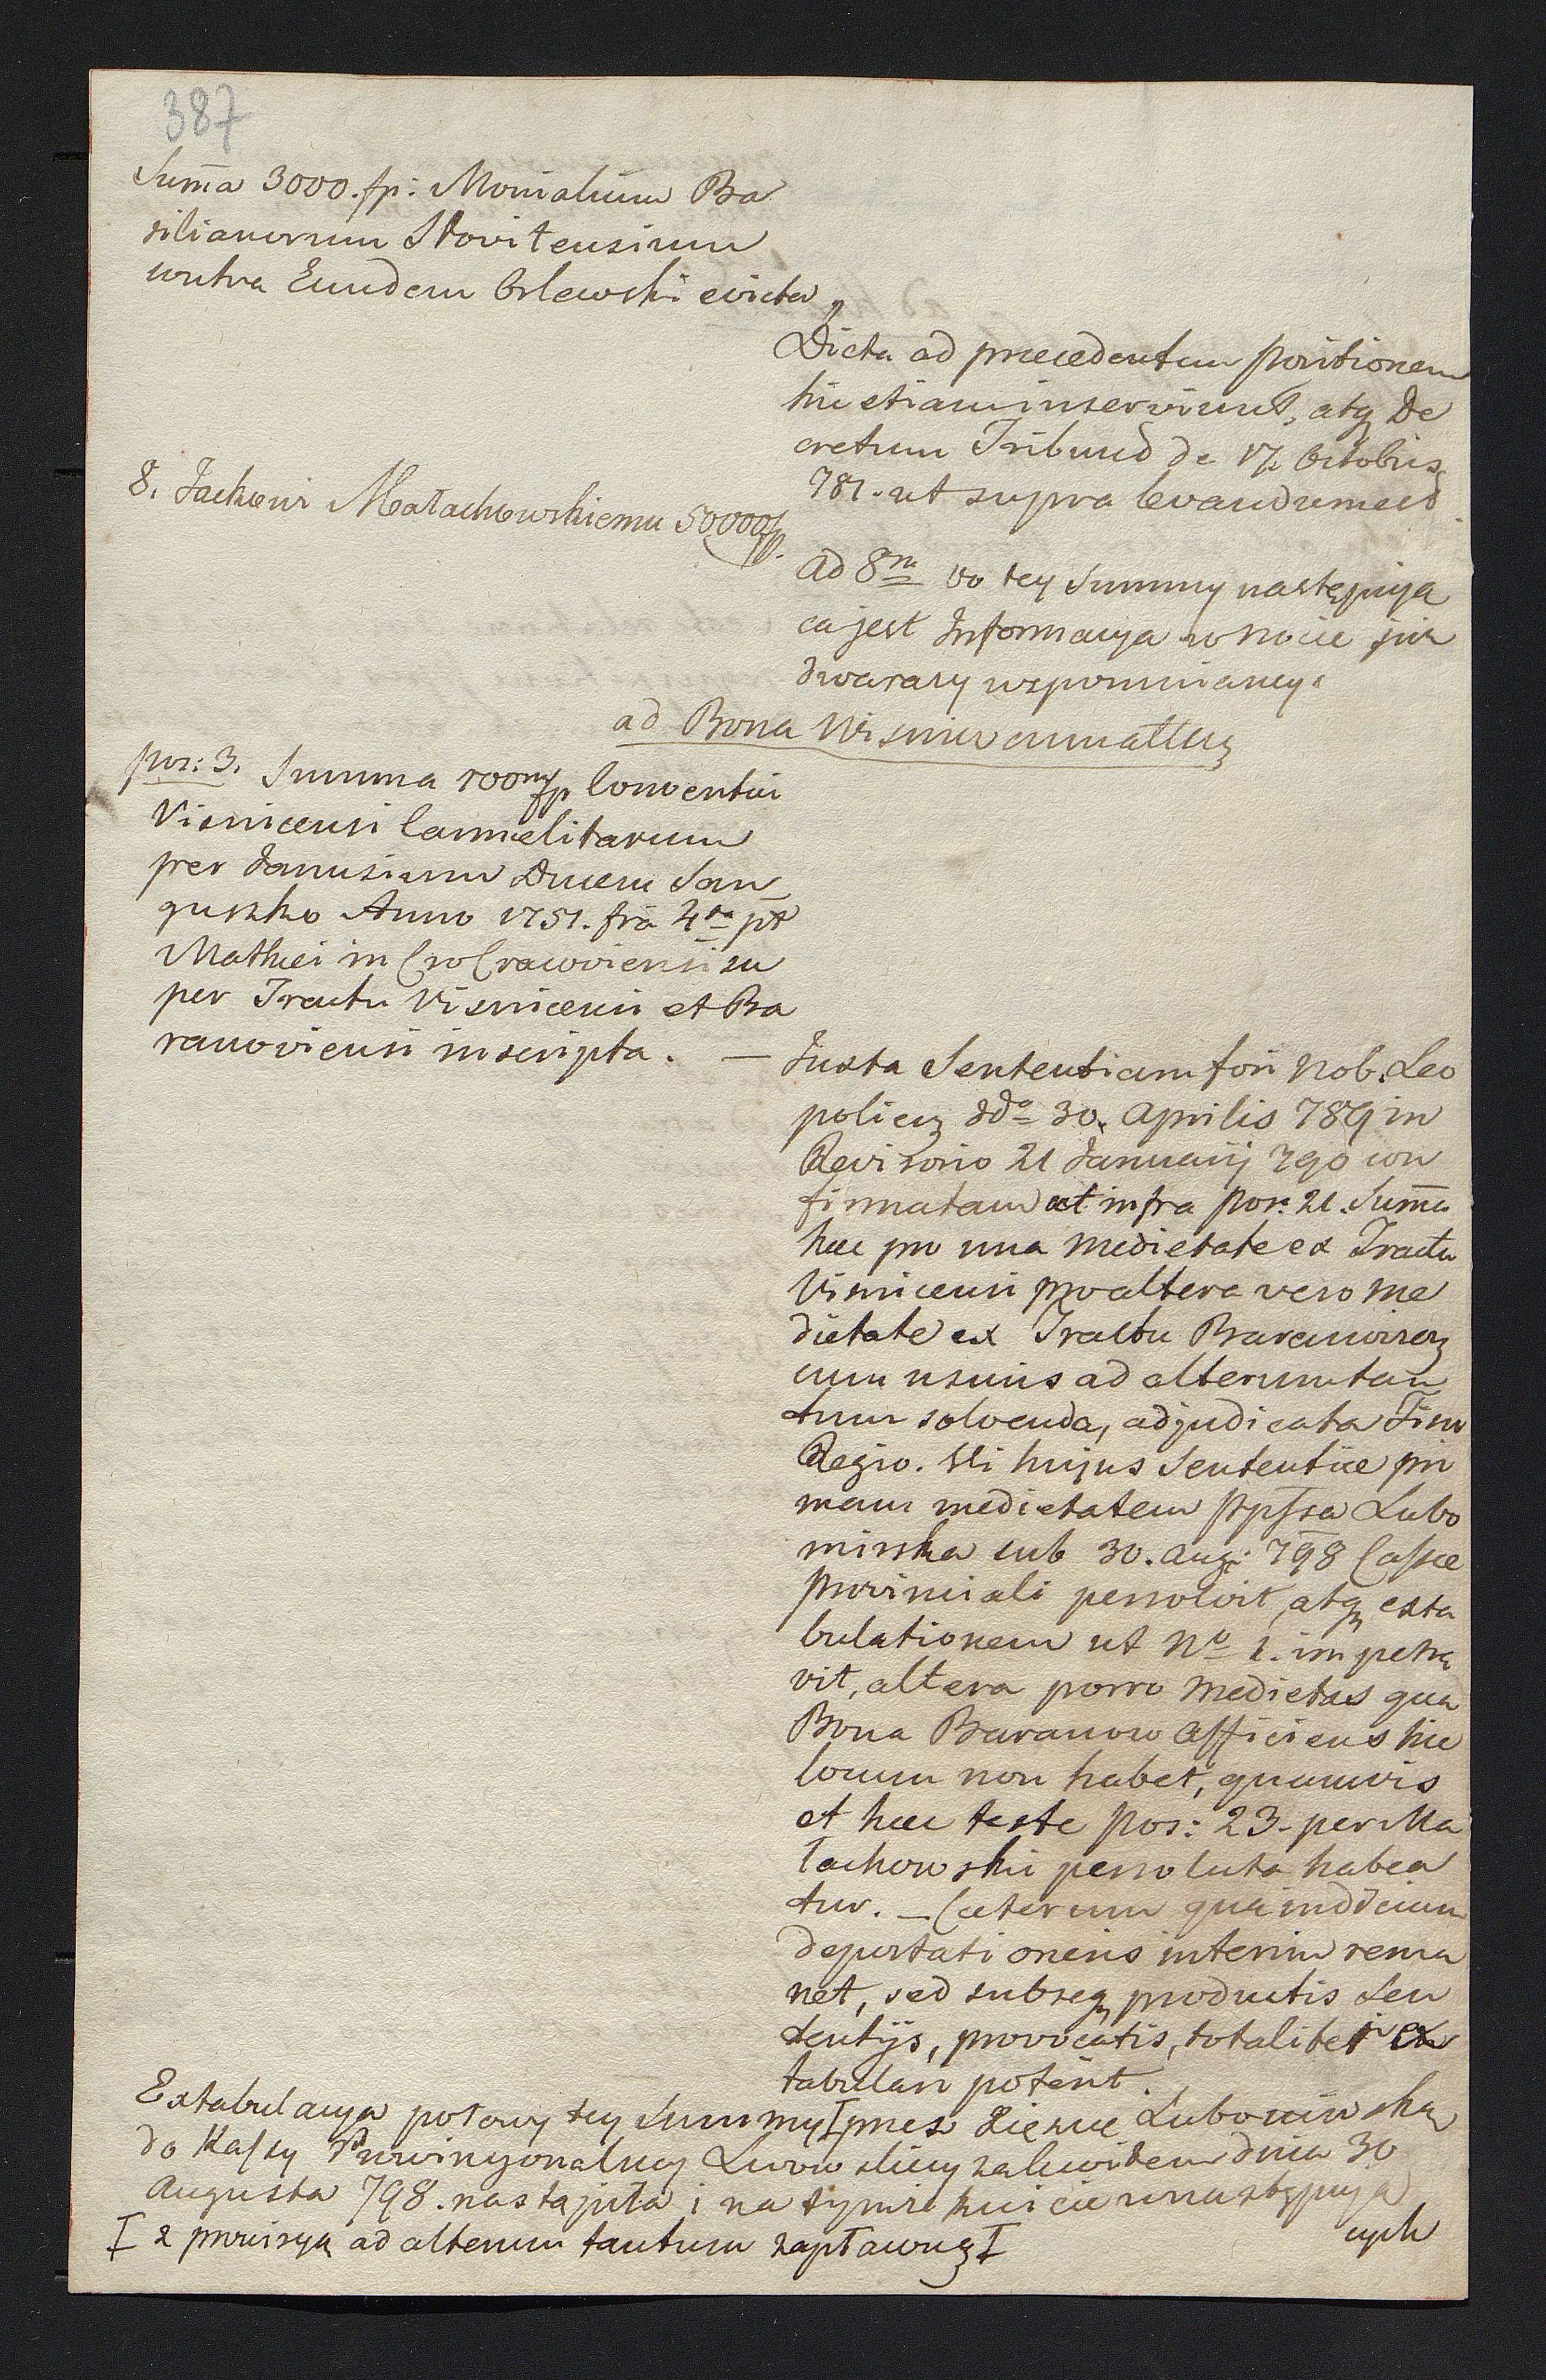 387
Sum̄a 3000. fp: Monialium Ba
silianarum Slovitensium
contra Eundem Orlewski evicta,
Dicta ad præcedentem positionem
hic etiam inserviunt, atq De
cretum Tribund de 17. Octobris
781. ut supra levandum est
8. Jackowi Małachowskiemu 50000 fp.
Ad 8m Do tey Summy następuią
ca jest Informacya w nocie już
dwa razy wspomnianey.
ad Bona Wisnicz enumattens
pos: 3. Summa 100m fp Conventui
Visnicensi Carmelitarum
per Janusium Ducem San
guszko Anno 1751. fra 4ta pt
Mathiei in Cro Cracoviensi su
per Tractu Visnicensi et Ba
ranoviensi inscripta. —
Juxta Sententiam fori Nob. Leo
polien ddo 30. Aprilis 789 in
Revisorio 21 Januarij 790 con
firmatam ut infra pos: 21. Sum̄a
hæc pro una medietate ex Tractu
Visnicensi pro altera vero me
dietate ex Tractu Baranovien
cum usuris ad alterum tan
tum solvenda, adjudicata Fisco
Regio. Vi hujus Sententiæ pri
mam medietatem Ppssa Lubo
mirska sub 30. Aug: 798 Cassæ
Provinciali persolvit, atq exta
bulationem ut No 1. impetra
vit, altera porro medietas qua
Bona Baranow afficiens hic
locum non habet, quamvis
et hæc teste pos: 23. per Ma
łachowski persoluta habea
tur. — Cæterum qua indicium
deportationens interim rema
net, sed subseq productis Sen
tentijs, provocatis, totaliter ex
tabulari poterit.
Extabulacya połowy tey Summy I przez Xiężnę Lubomirską
do Kassy Prowincyonalney Lwowskiey za kwitem dnia 30
Augusta 798. nastąpiła i na tymże kwicie
I z prowizyą ad alterum tantum zapłaconey I